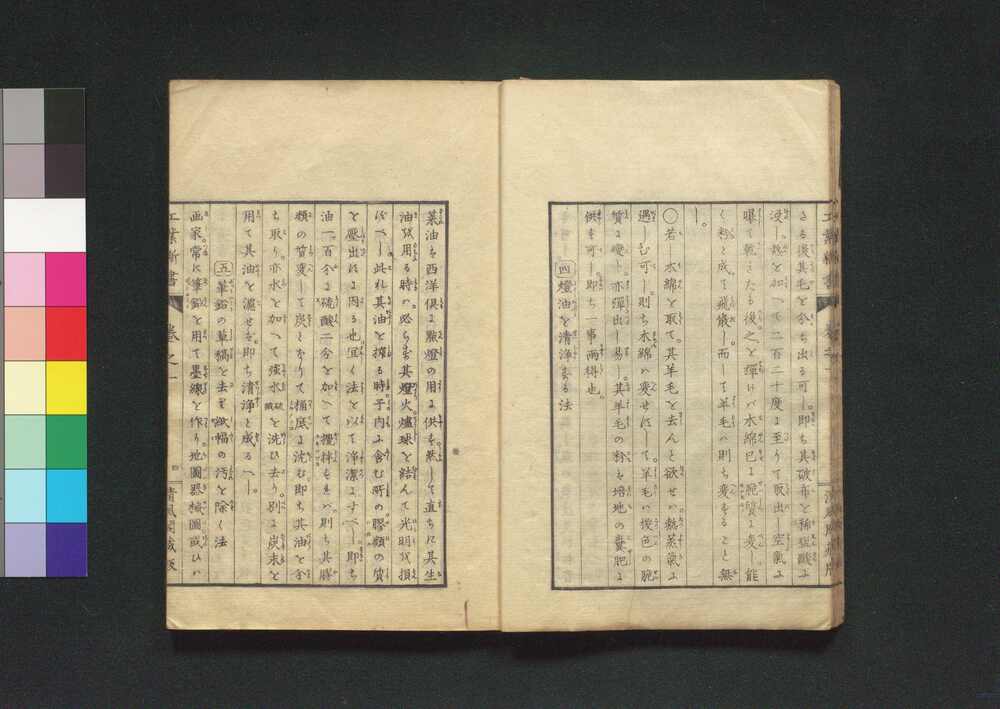 さる後其毛を分ち出る可し即ち其破布を稀硫酸に
浸し熱を加へて二百二十度に至りて取出し空氣に
曝て乾きたる後之を彈けバ木綿已に脆質に變し能
く粉と成て飛散し而して羊毛ハ則ち変すること無
し
○若し木綿を取て其羊毛を去んと欲せハ熱蒸氣に
遇しむ可し則ち木綿ハ変せすして羊毛ハ褐色の脆
質に變し亦彈出し易し其羊毛の粉も培地の糞肥に
供す可し即ち一事両得也
四 燈油を清淨する法
菜油も西洋俱に點燈の用に供す然して直ちに其生
油を用る時ハ必らす其燈火爐球を結んて光明を損
すへし此れ其油を搾る時子内に含む所の膠類の質
を壓出すに因る也宜く法を以て淨潔にすへし即ち
油一百分に硫酸二分を加へて攪拌すれハ則ち其膠
類の質変して炭となりて桶底に沈む即ち其油を分
ち取り亦水を加へて强水硫酸を洗ひ去り別に炭末を
用て其油を濾せハ即ち清淨と成るへし
五 筆鉛の草稿を去り紙幅の汚を除く法
画家常に筆鉛を用て墨線を作り地圖器械圖或ひハ
工業新書 卷之一 四 清風閣藏版